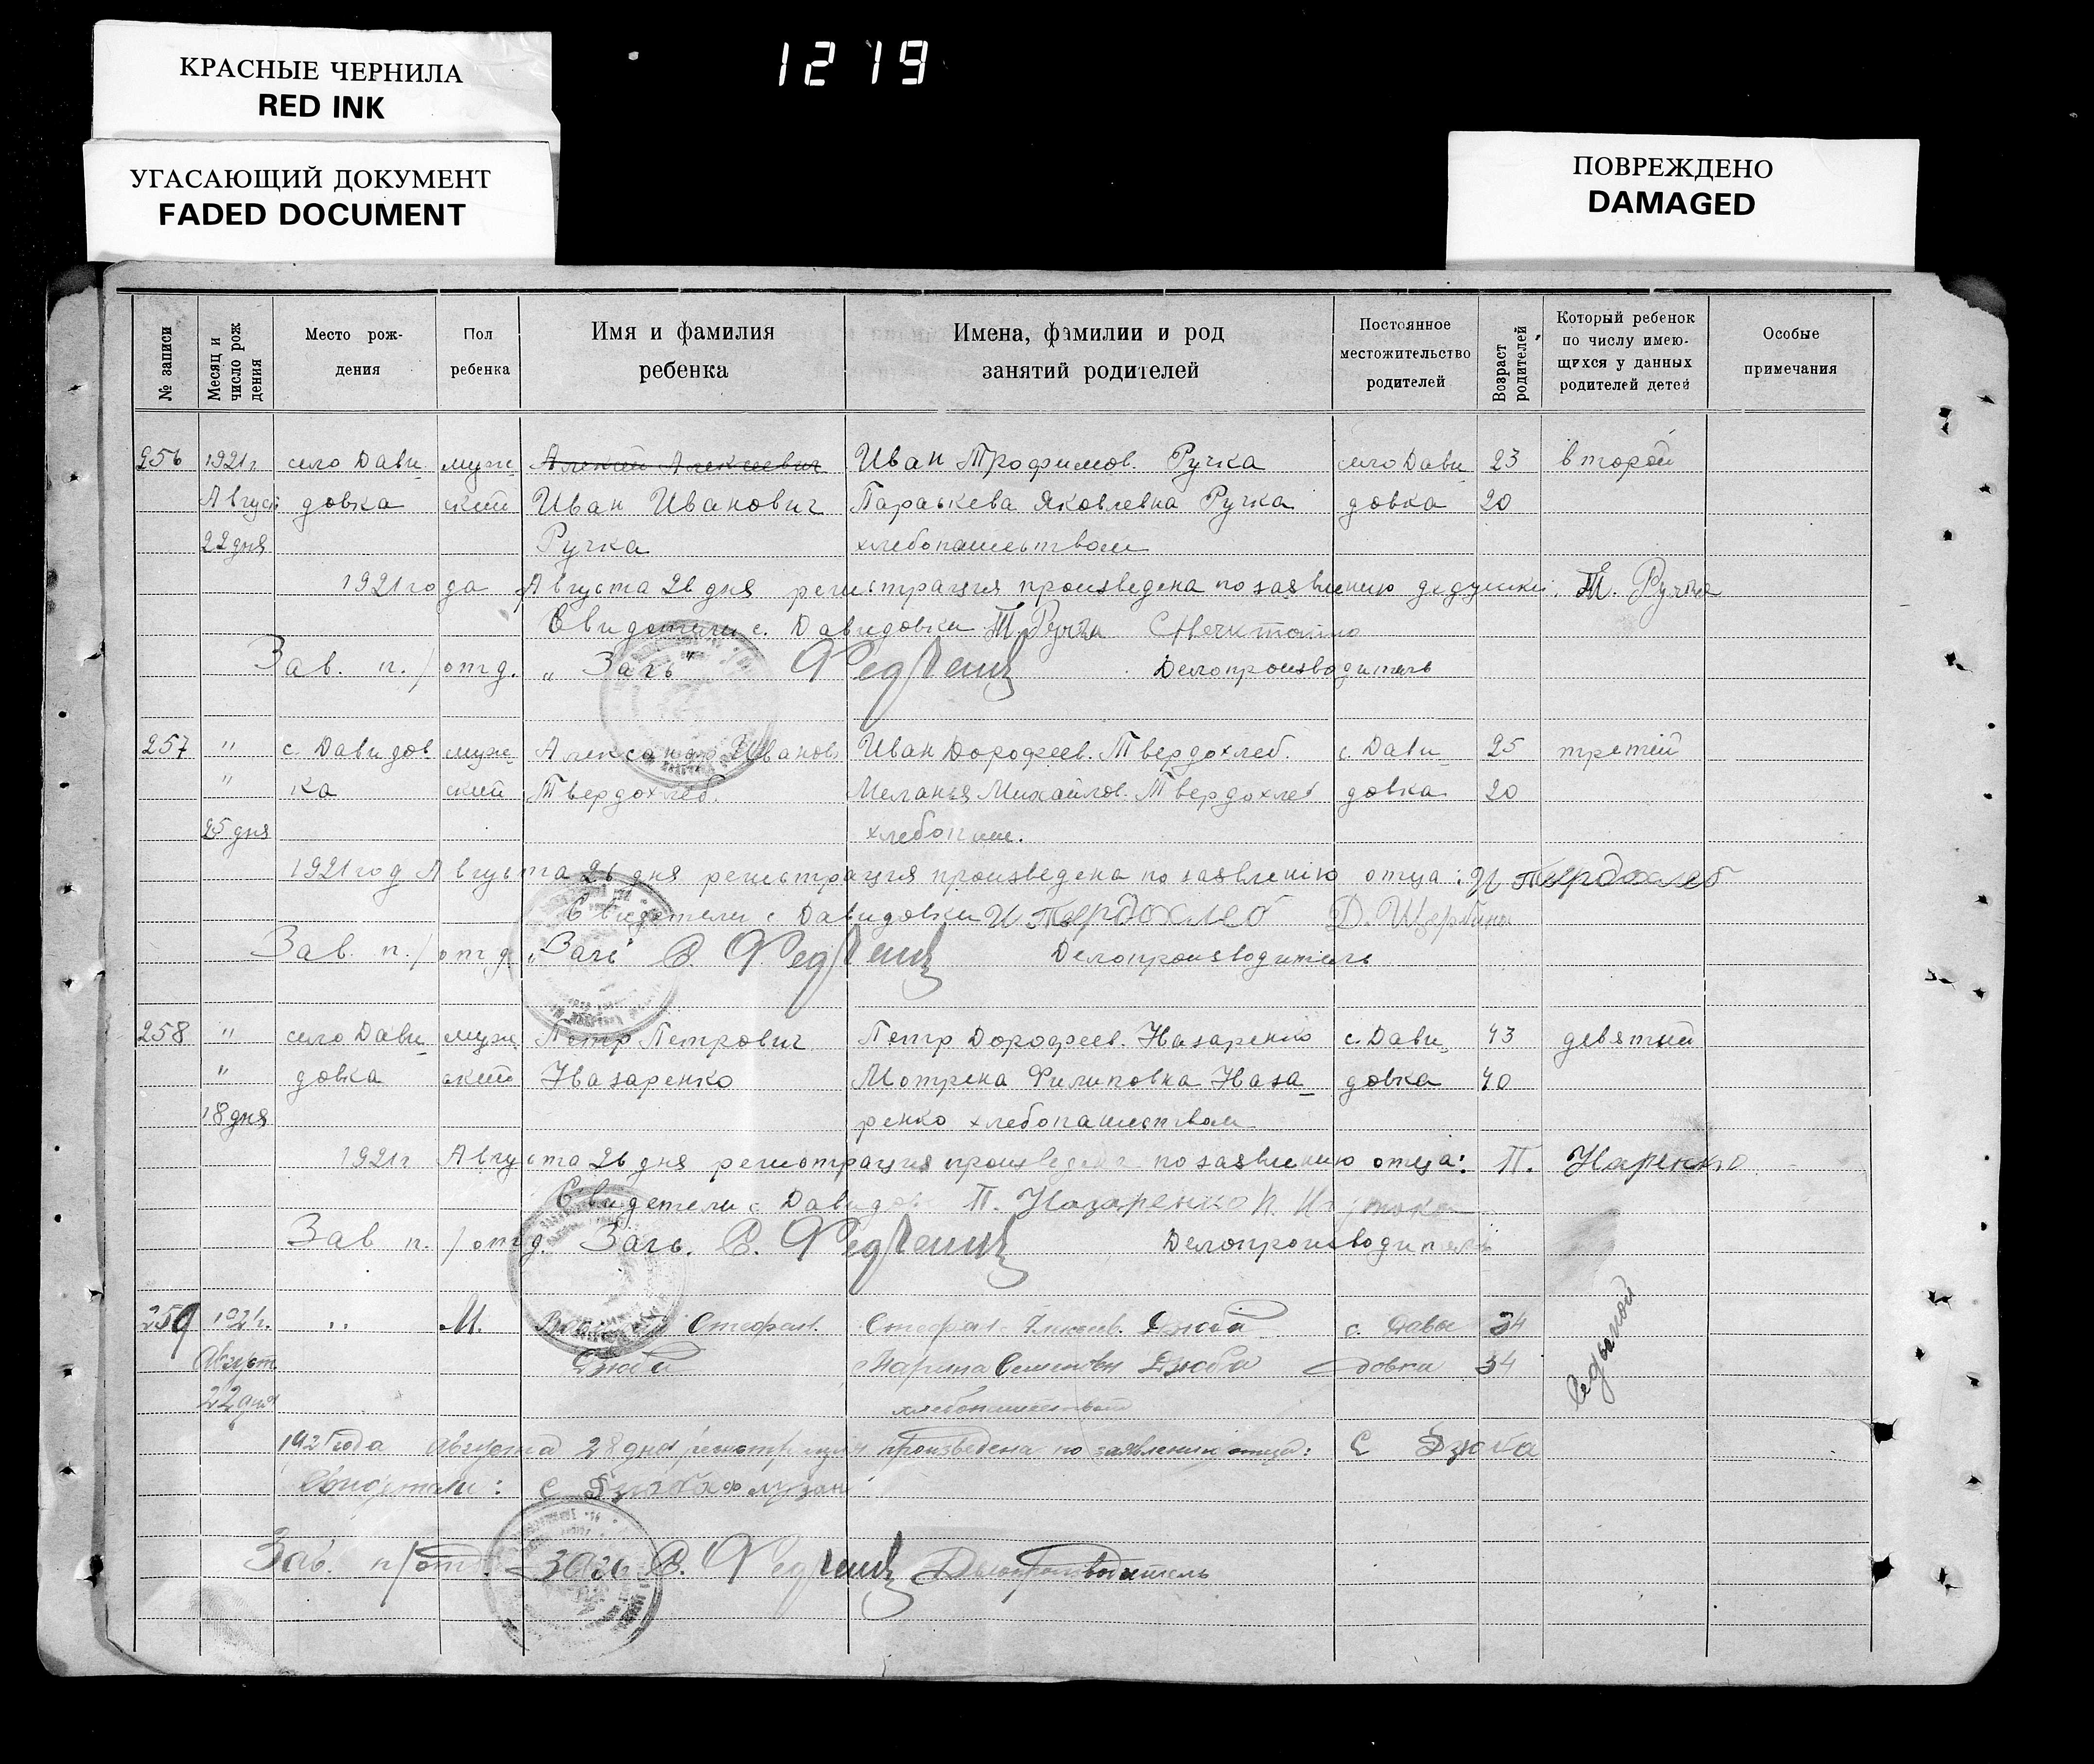 1219
КРАСНЫЕ ЧЕРНИЛА
RED INK
УГАСАЮЩИЙ ДОКУМЕНТ
FADED DOCUMENT
ПОВРЕЖДЕНО
DAMAGED
№ записи
Месяц и число рож дения
Место рож-
дения
Пол
ребенка
Имя и фамилия
ребенка
Имена, фамилии и род
занятий родителей
Постоянное
местожительство
родителей
Возраст родителей
Который ребенок
по числу имею-
щихся у данных
родителей детей
Особые
примечания
256 1921 г. село Дави- муж- Алексей Алексеевич Иван Трофимов. Ручка село Дави- 23 второй
Август довка ский Иван Иванович Параскева Яковлевна Ручка довка 20
22 дня Ручка хлебопашеством
1921 года Августа 26 дня регистрация произведена по заявлению дедушки: Т. Ручка
Свидетели с. Давидовки Т. Ручка
Зав. п./отд. „Загс" Делопроизводитель
257 " с. Давидов муж- Александр Иванов Иван Дорофеев. Твердохлеб. с. Дави- 25 третий
" ка ский Твердохлеб. Меланья Михайлов. Твердохлеб довка 20
25 дня хлебопаш.
1921 год Августа 26 дня регистрация произведена по заявлению отца: И Твердохлеб
Свидетели с Давидовки И Твердохлеб Д. Щербина
Зав. п./отд. „Загс" Делопроизводитель
258 " село Дави- муж- Петр Петрович Петр Дорофеев. Назаренко с. Дави- 43 девятый
" довка ский Назаренко Мотрена Филиповна Наза- довка 40
18 дня ренко хлебопашеством
1921 г Августа 26 дня регистрация произведена по заявлению отца: П. Наренко
Свидетели с Давидов П. Назаренко
Зав п./отд. Загс. Делопроизводитель
259 1921 г. " М. Стефан. Стефан Дзюба с. Давы 34
Август Дзюба Марина Семеновн Дзюба довки 34
22 дня хлебопашеством
1921 года Августа 28 дня регистрация произведена по заявлению отца: С Дзюба
Свидетели: С Дзюба
Зав. п/отд. Загс Делопроизводитель